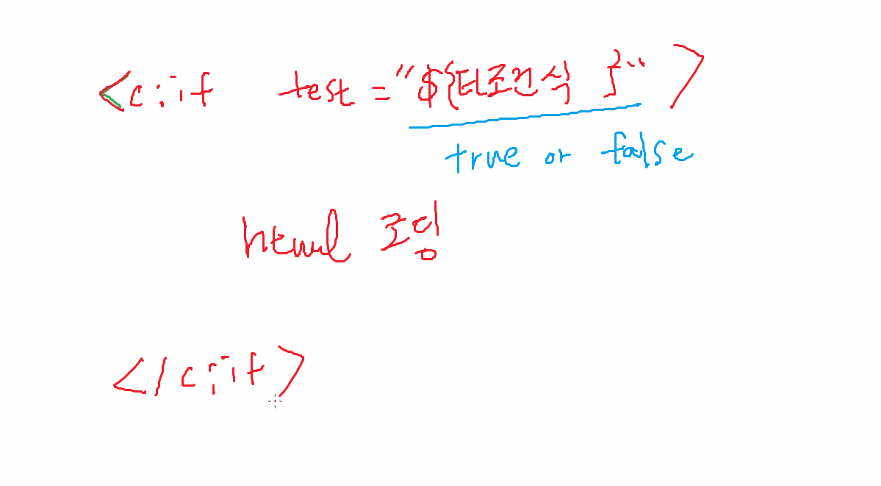 <c:if test="${EL조건식 }">
true or false
html 코딩
</c:if>